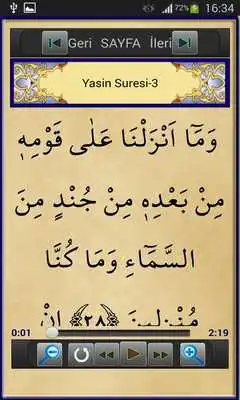 72% 16:34
Geri SAYFA İleri
Yasin Suresi-3
وَمَٓا اَنْزَلْنَا عَلٰى قَوْمِه۪
مِنْ بَعْدِه۪ مِنْ جُنْدٍ مِنَ
السَّمَٓاءِ وَمَا كُنَّا
مُنْزِل۪ينَ ﴿٢٨﴾ اِنْ
0:01 2:19